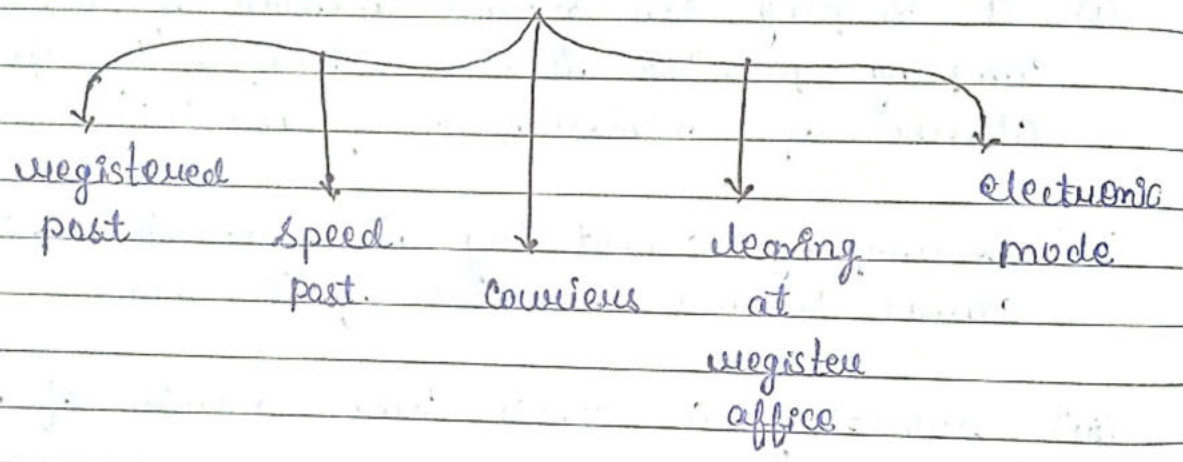 registered
post
speed
post.
couriers
leaving
at
register
office.
electronic
mode